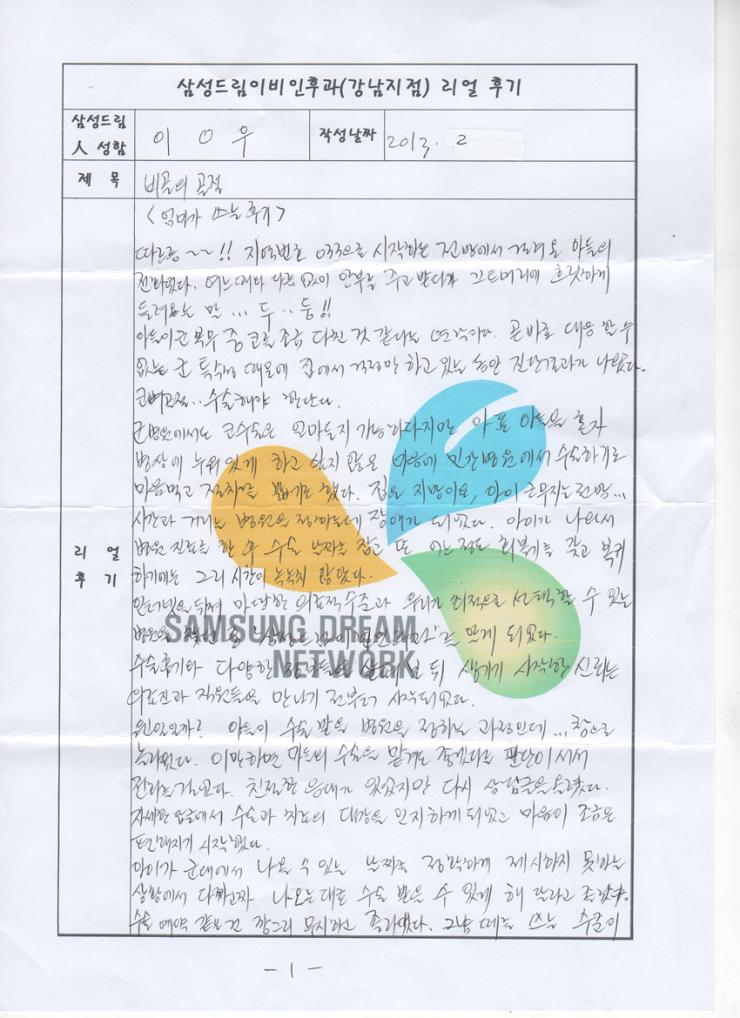 삼성드림이비인후과(강남지점) 리얼 후기
삼성드림
人 성함
이 O 우
작성날짜
2013. 2
제 목
비골의 골절
<엄마가 쓰는 후기>
따르릉~~!! 지역번호 033으로 시작하는 전방에서 걸려온 아들의
전화였다. 여느 때와 다름 없이 안부를 주고 받다가 끄트머리에 흐릿하게
들려오는 말... 두..둥!!
아들이 군 복무 중 코를 조금 다친 것 같다는 연락이다. 곧바로 대응 할 수
없는 군 특수성 때문에 집에서 걱정만 하고 있는 동안 진단결과가 나왔다.
코뼈골절.. 수술해야 한단다.
군병원에서도 코수술은 얼마든지 가능하다지만 아픈 아들을 혼자
병상에 누워있게 하고 싶지 않은 마음에 민간병원에서 수술하기로
마음먹고 절차를 밟기로 했다. 집은 지방이요, 아이 근무지는 전방...
시간과 거리는 병원을 정하는데 장애가 되었다. 아이가 나와서
병원 진료를 한 후 수술 날짜를 잡고 또 어느정도 회복기를 갖고 복귀
하기에는 그리 시간이 녹녹치 않았다.
리 얼
후 기
인터넷을 뒤져 마땅한 의료적수준과 우리가 최적으로 선택할 수 있는
병원을 찾던 중 "삼성드림이비인후과"를 알게 되었다.
수술후기와 다양한 뒤 생기기 시작한 신뢰는
의료진과 직원들을 만나기 전부터 시작되었다.
SAMSUNG DREAM
NETWORK
왠일일까? 아들이 수술 받을 병원을 정하는 과정인데... 참으로
놀라웠다. 이만하면 아들의 수술을 맡겨도 좋겠다는 판단이 서서
전화를 걸었다. 친절한 응대가 있었지만 다시 상담글을 올렸다.
자세한 답글에서 수술과 치료의 대강을 인지하게 되었고 마음이 조금은
편안해지기 시작했다.
아이가 군대에서 나올 수 있는 날짜를 정확하게 제시하지 못하는
상황에서 다짜고짜 나오는대로 수술 받을 수 있게 해 달라고 졸랐다.
수술 예약 같은건 깡그리 무시하고 졸라댔다. 그냥 떼를 쓰는 수준이
-1-